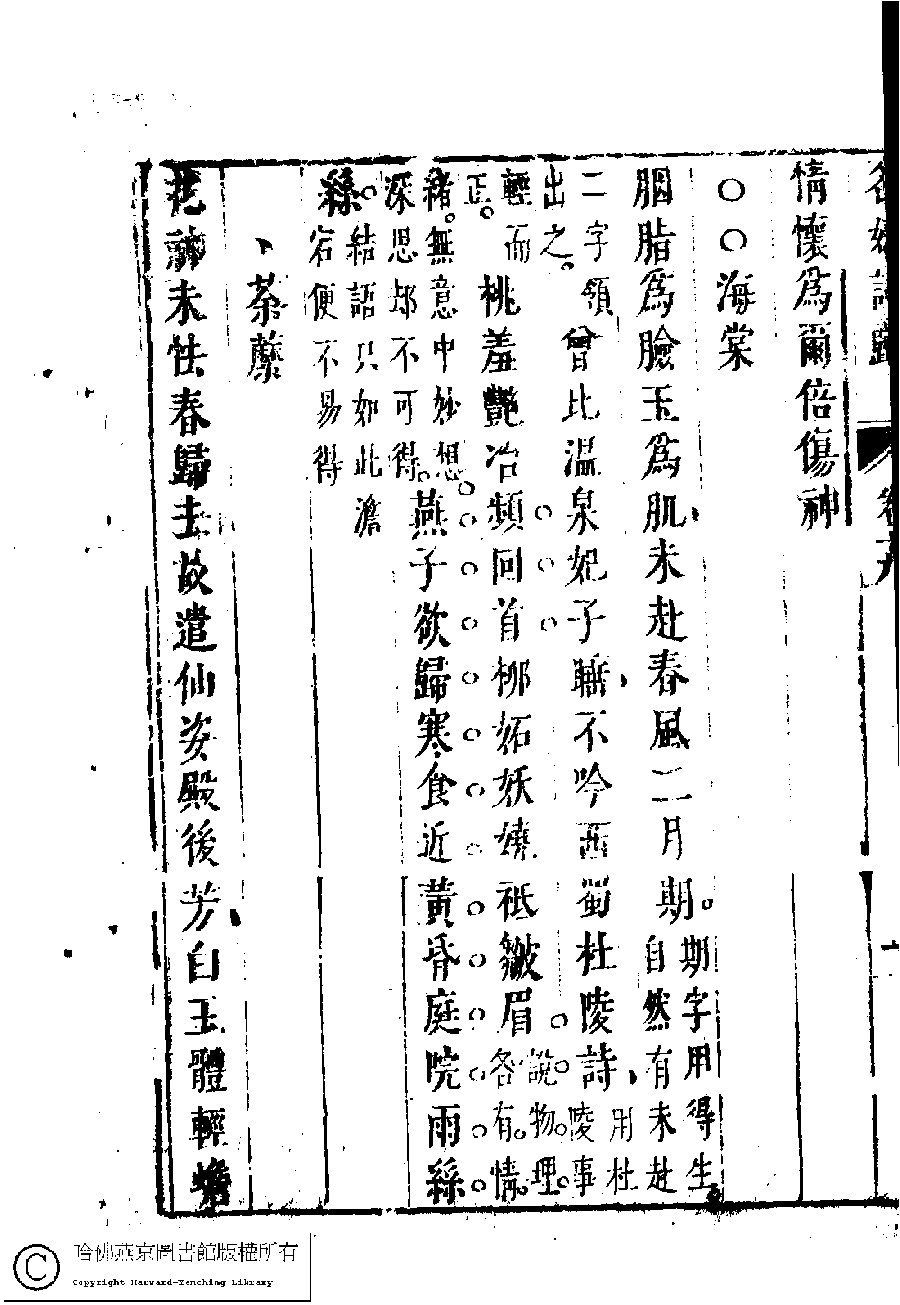 名媛詩歸
情懷為爾倍傷神
○○海棠
胭脂為臉玉為肌未赴春風二月期期字用得生自然有未赴
二字領出之曾比温泉妃子睡不吟西蜀杜陵詩用杜陵事
輕而正桃羞艷冶頻回首柳妬妖嬈秪皺眉說物理各有情
緒無意中妙想深思却不可得燕子欲歸寒食近黃昏庭院雨絲
絲結語只如此澹宕便不易得
荼蘼
花神未怯春歸去故遣仙姿殿後芳白玉體輕蟾
哈佛燕京圖書館版權所有
Copyright Harvard-Yenching Library